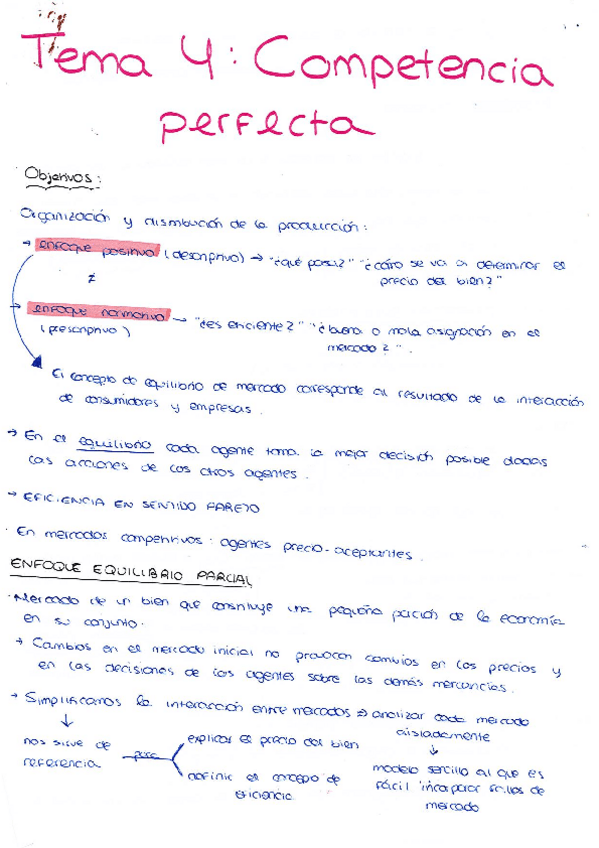 Tema 4: Competencia
perfecta
Objetivos:
Organización y distribución de la producción:
→ enfoque positivo (descriptivo) → "¿qué pasa?" "¿cómo se va a determinar el
precio del bien?"
≠
→ enfoque normativo → "¿es eficiente?" "¿buena o mala asignación en el
(prescriptivo) mercado?".
El concepto de equilibrio de mercado corresponde al resultado de la interacción
de consumidores y empresas.
→ En el equilibrio cada agente toma la mejor decisión posible dadas
las acciones de los otros agentes.
→ EFICIENCIA EN SENTIDO PARETO
· En mercados competitivos: agentes precio-aceptantes.
ENFOQUE EQUILIBRIO PARCIAL
· Mercado de un bien que constituye una pequeña porción de la economía
en su conjunto.
→ Cambios en el mercado inicial no provocan cambios en los precios y
en las decisiones de los agentes sobre las demás mercancías.
→ Simplificamos la interacción entre mercados ⇒ analizar cada mercado
aisladamente
↓ ↓
nos sirve de para explicar el precio del bien
referencia definir el concepto de
eficiencia
modelo sencillo al que es
fácil incorporar fallos de
mercado